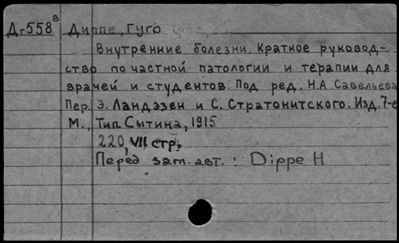 Дг558 в Диппе, Гуго
Внутренние болезни. Краткое руковод-
ство по частной патологии и терапии для
врачей и студентов. Под ред. Н.А. Савельева
Пер. Э. Ландэзен и С. Стратонитского. Изд. 7-е
М., Тип. Сытина, 1915
220, VII стр.
Перед заг. авт.: Dippe H